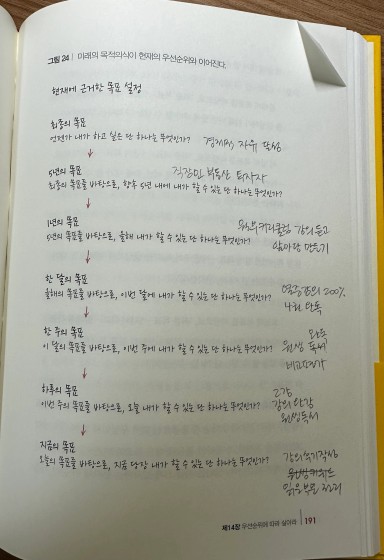 그림 24 | 미래의 목적의식이 현재의 우선순위와 이어진다.
현재에 근거한 목표 설정
최종의 목표
언젠가 내가 하고 싶은 단 하나는 무엇인가? 경제적 자유 달성
5년의 목표 직장인 부동산 투자자
최종의 목표를 바탕으로, 향후 5년 내에 내가 할 수 있는 단 하나는 무엇인가?
1년의 목표
5년의 목표를 바탕으로, 올해 내가 할 수 있는 단 하나는 무엇인가? 강의 듣고
앞마당 만들기
한 달의 목표
올해의 목표를 바탕으로, 이번 달에 내가 할 수 있는 단 하나는 무엇인가? 200%
4회 만독
한 주의 목표
이 달의 목표를 바탕으로, 이번 주에 내가 할 수 있는 단 하나는 무엇인가? 완료
원씽 독서
하루의 목표
이번 주의 목표를 바탕으로, 오늘 내가 할 수 있는 단 하나는 무엇인가? 2강
강의 완강
원씽독서
지금의 목표
오늘의 목표를 바탕으로, 지금 당장 내가 할 수 있는 단 하나는 무엇인가? 강의후기작성
읽은부분 정리
제14장 우선순위에 따라 살아라 | 191